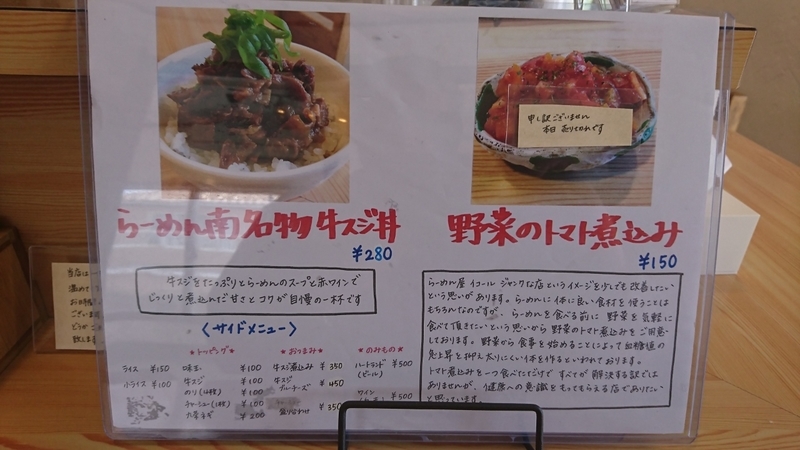 申し訳ございません
本日 売り切れです
らーめん南 名物 牛スジ丼
¥280
牛スジをたっぷりとらーめんのスープと赤ワインで
じっくりと煮込んだ甘さとコクが自慢の一杯です
〈サイドメニュー〉
★トッピング★
★おつまみ★
★のみもの★
ライス ¥150
小ライス ¥100
味玉 ¥100
牛スジ ¥100
のり(4枚) ¥100
チャーシュー(1枚) ¥100
九条ネギ ¥200
牛スジ煮込み ¥350
牛スジ
ブルーチーズ ¥450
盛り合わせ ¥350
ハートランド ¥500
(ビール)
ワイン ¥500
野菜のトマト煮込み
¥150
らーめん屋 イコール ジャンクな店というイメージを少しでも改善したい
という思いがあります。らーめんに体に良い食材を使うことは
もちろんなのですが、らーめんを食べる前に 野菜を気軽に
食べて頂きたいという思いから 野菜のトマト煮込みをご用意
しております。野菜から食事を始めることによって血糖値の
急上昇を抑え太りにくい体を作るといわれております。
トマト煮込みを一つ食べただけで すべてが 解決する訳では
ありませんが、健康への意識をもってもらえる店でありたい
と思っています。
当店は